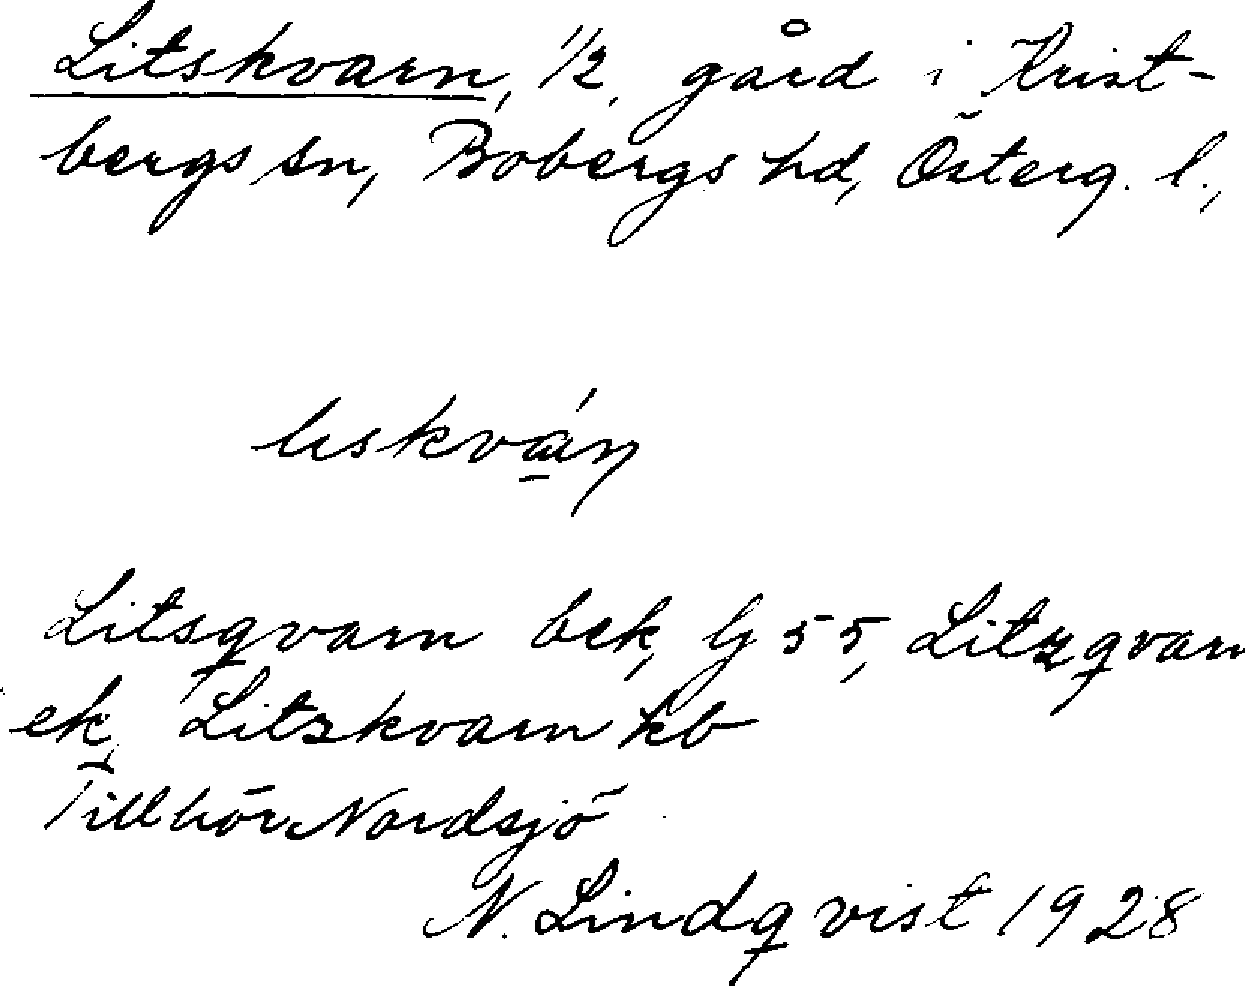 Litskvarn, 1/2 gård i Krist-
bergs sn, Bobergs hd, Österg. l.,
Litsqvarn bek, Gj 55, Litzqvarn
ek, Litzkvarn kb
Tillhör Nordsjö
N. Lindqvist 1928